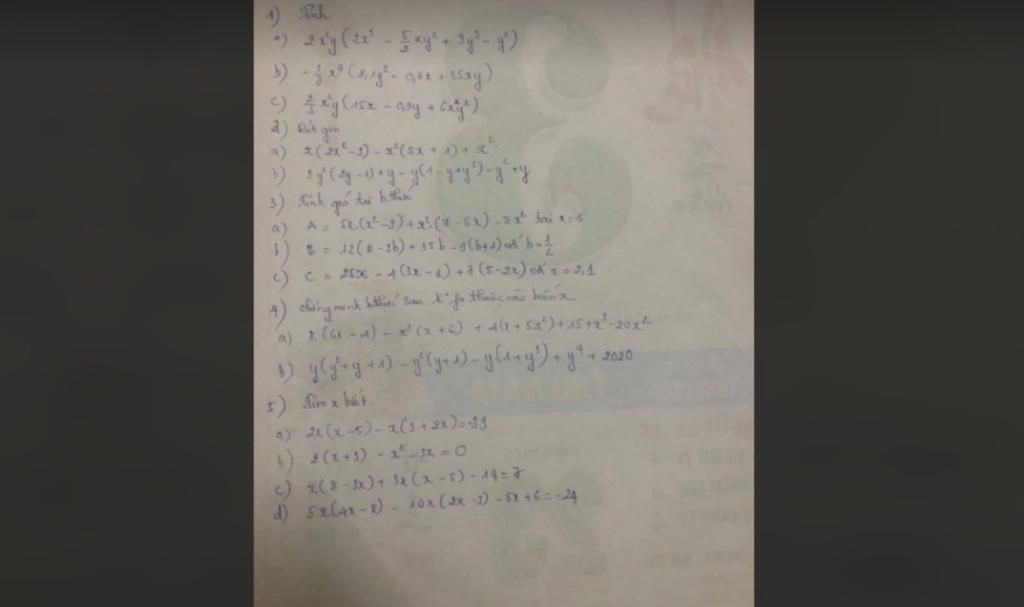 1) Tính
a) 2x²y(2x³ - 5/2 xy² + 3y³ - y²)
b) x⁴(2,1y² - 0,7x + 35xy)
c) 2/3 x²y(15x - 0,9y + 6x²y²)
2) Rút gọn
a) x(2x² - 3) - x²(5x + 1) + x²
b) 3y²(2y - 1) + y - y(1 - y + y²) - y² + y
3) Tính giá trị b.thức
a) A = 5x(x² - 3) + x²(7 - 5x) - 7x² tại x = -5
b) B = 12(2 - 3b) + 35b - 9(b + 1) với b = 1/2
c) C = 25x - 4(3x - 1) + 7(5 - 2x) với x = 2,1
4) Chứng minh b.thức sau k° phụ thuộc vào biến x
a) x(6x - 1) - x²(x + 6) + 4(x + 5x²) + 15 + x³ - 20x²
b) y(y² + y + 1) - y²(y + 1) - y(1 + y³) + y⁴ + 2020
5) Tìm x biết
a) 2x(x - 5) - x(3 + 2x) = -39
b) 2(x + 3) - x² - 3x = 0
c) x(8 - 3x) + 3x(x - 5) - 14 = 7
d) 5x(4x - 8) - 10x(2x - 3) - 5x + 6 = -24